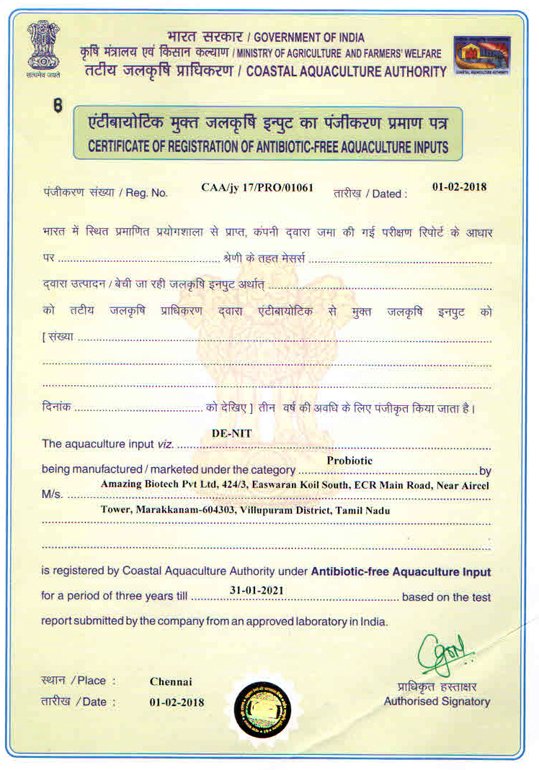 भारत सरकार / GOVERNMENT OF INDIA
कृषि मंत्रालय एवं किसान कल्याण / MINISTRY OF AGRICULTURE AND FARMERS' WELFARE
तटीय जलकृषि प्राधिकरण / COASTAL AQUACULTURE AUTHORITY
सत्यमेव जयते
8
एंटीबायोटिक मुक्त जलकृषि इन्पुट का पंजीकरण प्रमाण पत्र
CERTIFICATE OF REGISTRATION OF ANTIBIOTIC-FREE AQUACULTURE INPUTS
पंजीकरण संख्या / Reg. No. CAA/jy 17/PRO/01061 तारीख / Dated : 01-02-2018
भारत में स्थित प्रमाणित प्रयोगशाला से प्राप्त, कंपनी द्वारा जमा की गई परीक्षण रिपोर्ट के आधार
पर ........ श्रेणी के तहत मेसर्स ........
द्वारा उत्पादन / बेची जा रही जलकृषि इनपुट अर्थात् ........
को तटीय जलकृषि प्राधिकरण द्वारा एंटीबायोटिक से मुक्त जलकृषि इनपुट को
[ संख्या ........
दिनांक ........ को देखिए ] तीन वर्ष की अवधि के लिए पंजीकृत किया जाता है।
The aquaculture input viz. DE-NIT
being manufactured / marketed under the category Probiotic by
M/s. Amazing Biotech Pvt Ltd, 424/3, Easwaran Koil South, ECR Main Road, Near Aircel
Tower, Marakkanam-604303, Villupuram District, Tamil Nadu
is registered by Coastal Aquaculture Authority under Antibiotic-free Aquaculture Input
for a period of three years till 31-01-2021 based on the test
report submitted by the company from an approved laboratory in India.
स्थान / Place : Chennai
तारीख / Date : 01-02-2018
प्राधिकृत हस्ताक्षर
Authorised Signatory